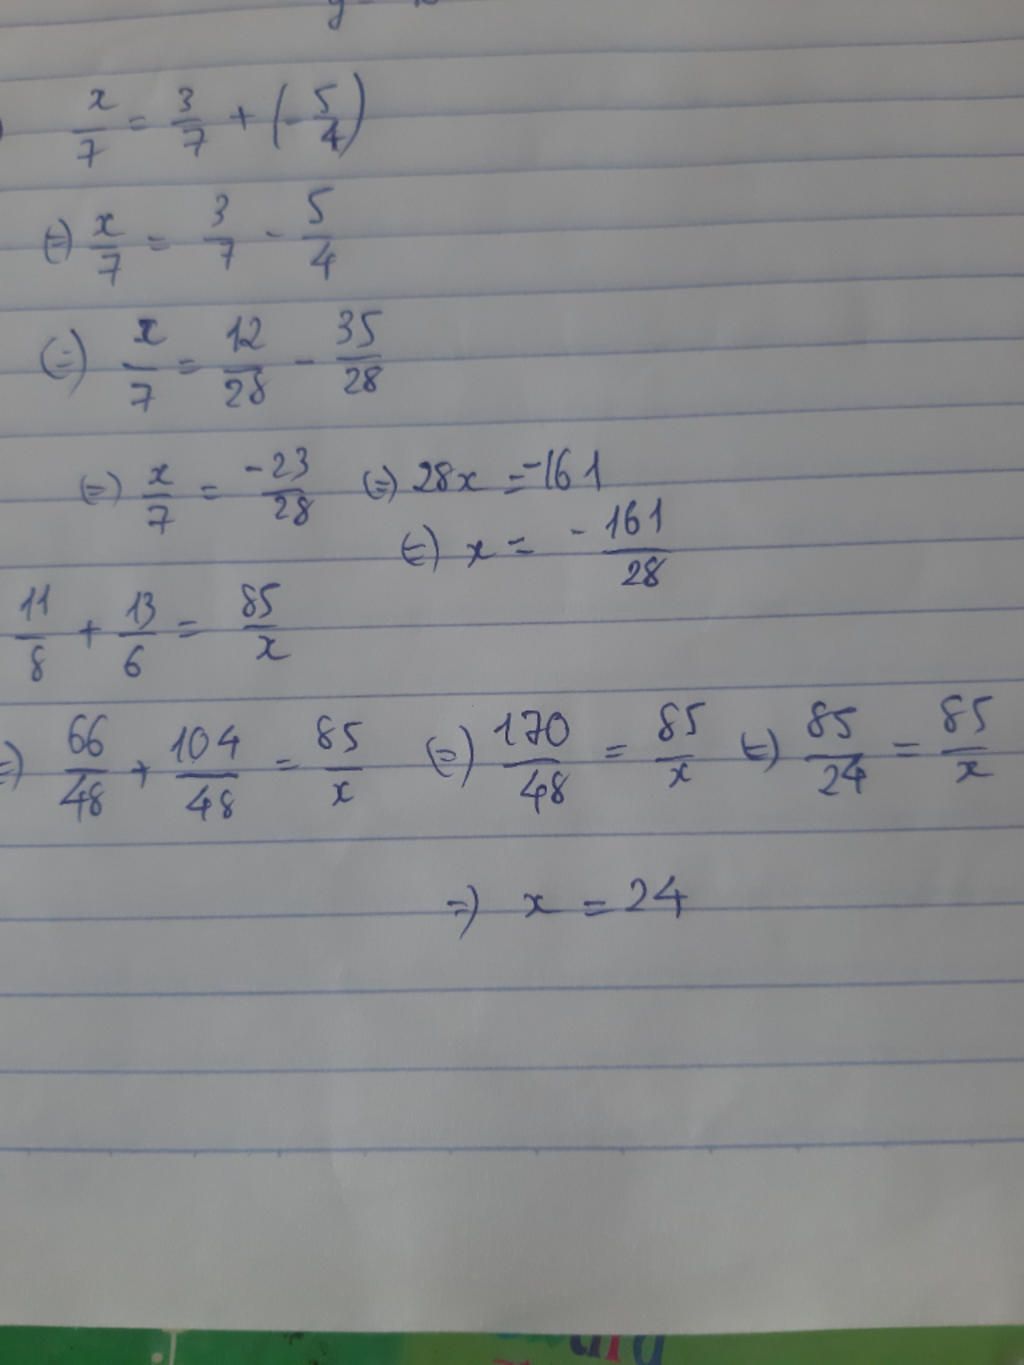 x/7 = 3/7 + (-5/4)
(=) x/7 = 3/7 - 5/4
(=) x/7 = 12/28 - 35/28
(=) x/7 = -23/28 (=) 28x = -161
(=) x = -161/28
11/8 + 13/6 = 85/x
=) 66/48 + 104/48 = 85/x (=) 170/48 = 85/x (=) 85/24 = 85/x
=) x = 24